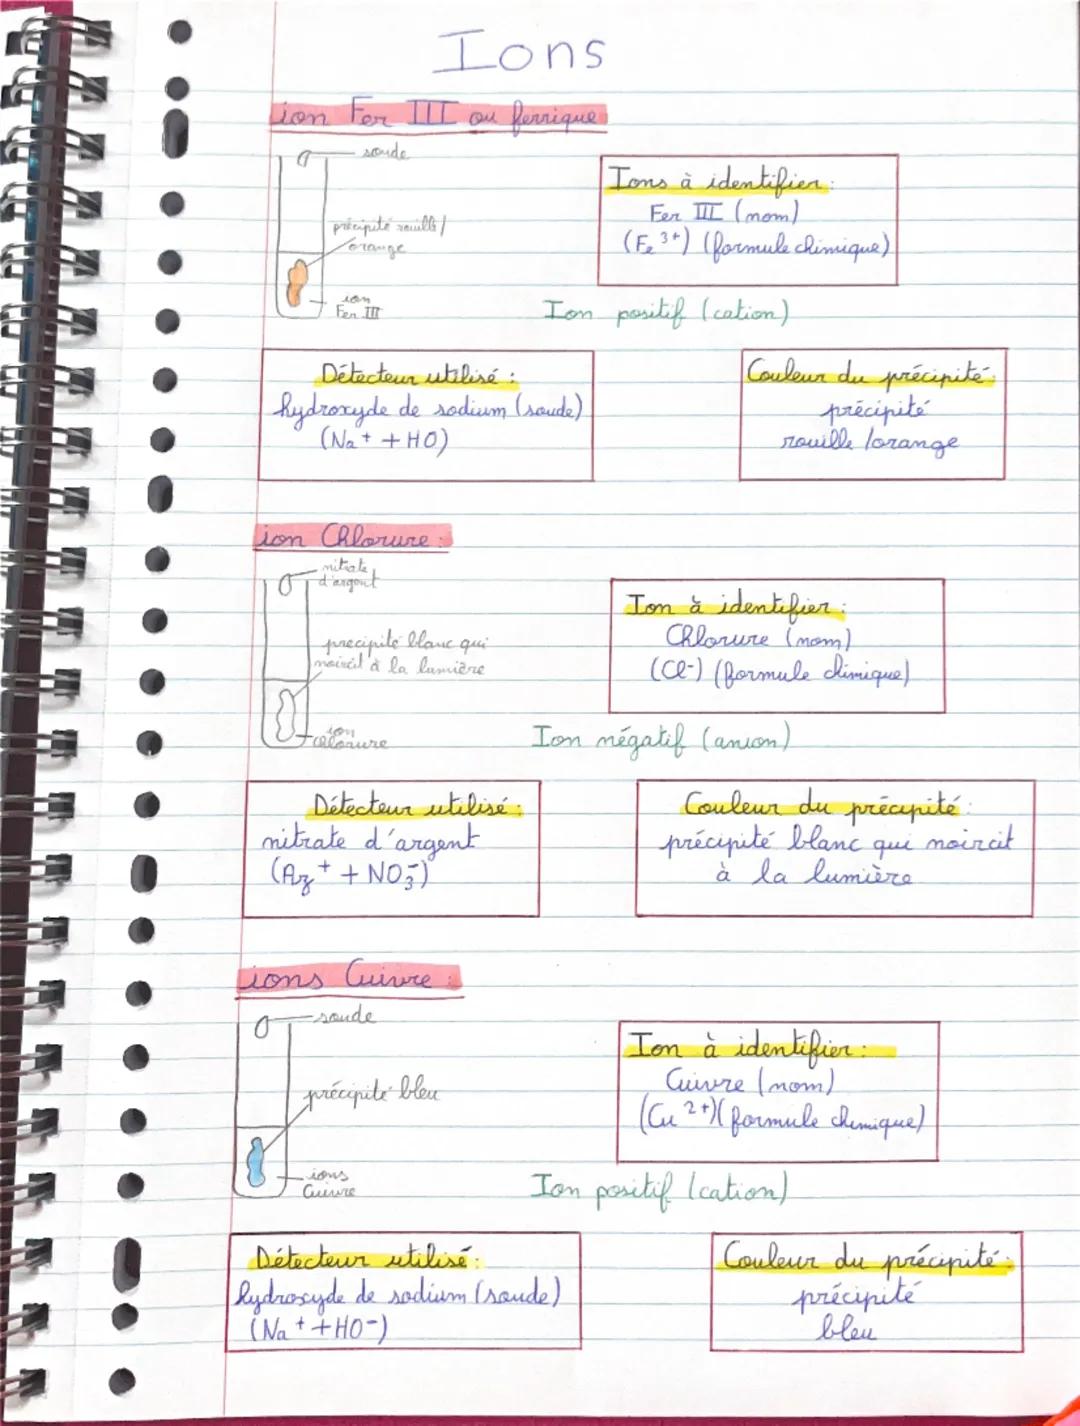 Ions
ion Fer III ou ferrique
soude
précipité rouille/
orange
ion
Fer III
Ions à identifier :
Fer III (nom)
(Fe 3+) (formule chimique)
Ion positif (cation)
Détecteur utilisé :
hydroxyde de sodium (soude)
(Na+ + HO)
Couleur du précipité :
précipité
rouille /orange
ion Chlorure :
nitrate
d'argent
precipité blanc qui
noircit à la lumière
ion
chlorure
Ion à identifier :
Chlorure (nom)
(Cl-) (formule chimique)
Ion négatif (anion)
Détecteur utilisé :
nitrate d'argent
(Ag+ + NO3-)
Couleur du précipité :
précipité blanc qui noircit
à la lumière
ions Cuivre :
soude
précipité bleu
ions
Cuivre
Ion à identifier :
Cuivre (nom)
(Cu 2+) (formule chimique)
Ion positif (cation)
Détecteur utilisé :
hydroxyde de sodium (soude)
(Na+ + HO-)
Couleur du précipité :
précipité
bleu